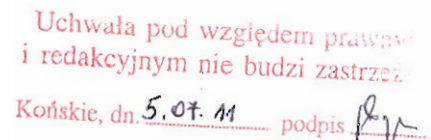 Uchwała pod względem prawny
i redakcyjnym nie budzi zastrzeż
Końskie, dn. 5.07.11 podpis